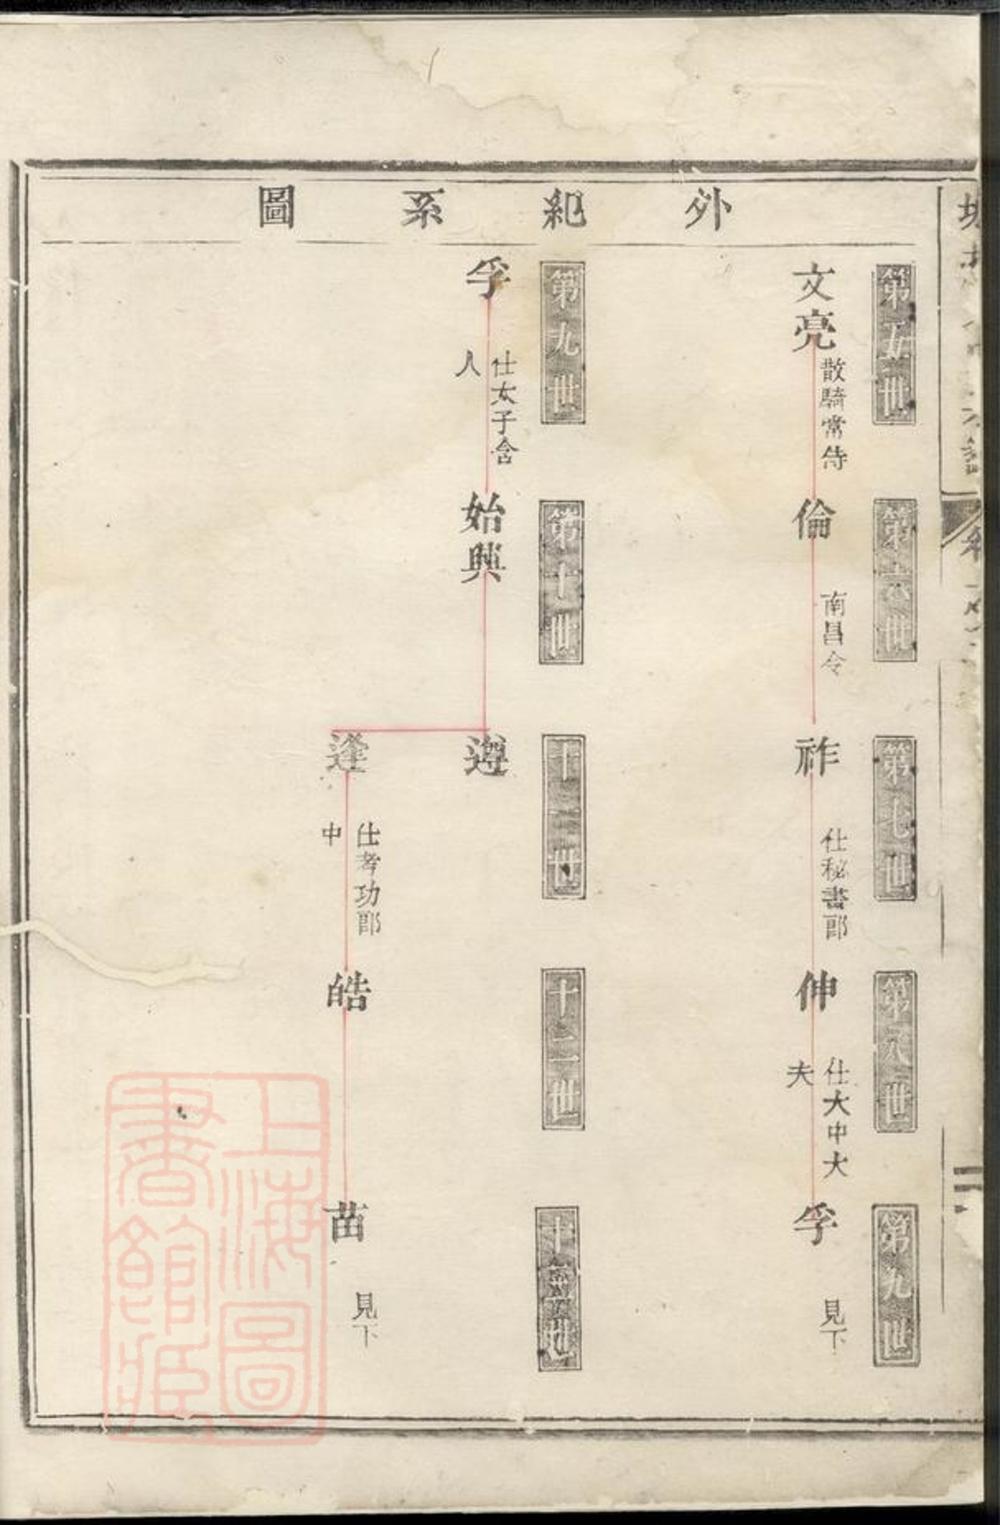 外紀系圖
第五世
文亮 散騎常侍
第六世
倫 南昌令
第七世
祚 仕秘書郎
第八世
伸 仕大中大夫
第九世
孚 見下
第九世
孚 仕太子舍人
第十世
始興
十一世
遵
逢 仕考功郎中
十二世
皓
十三世
苗 見下
上海圖書館藏